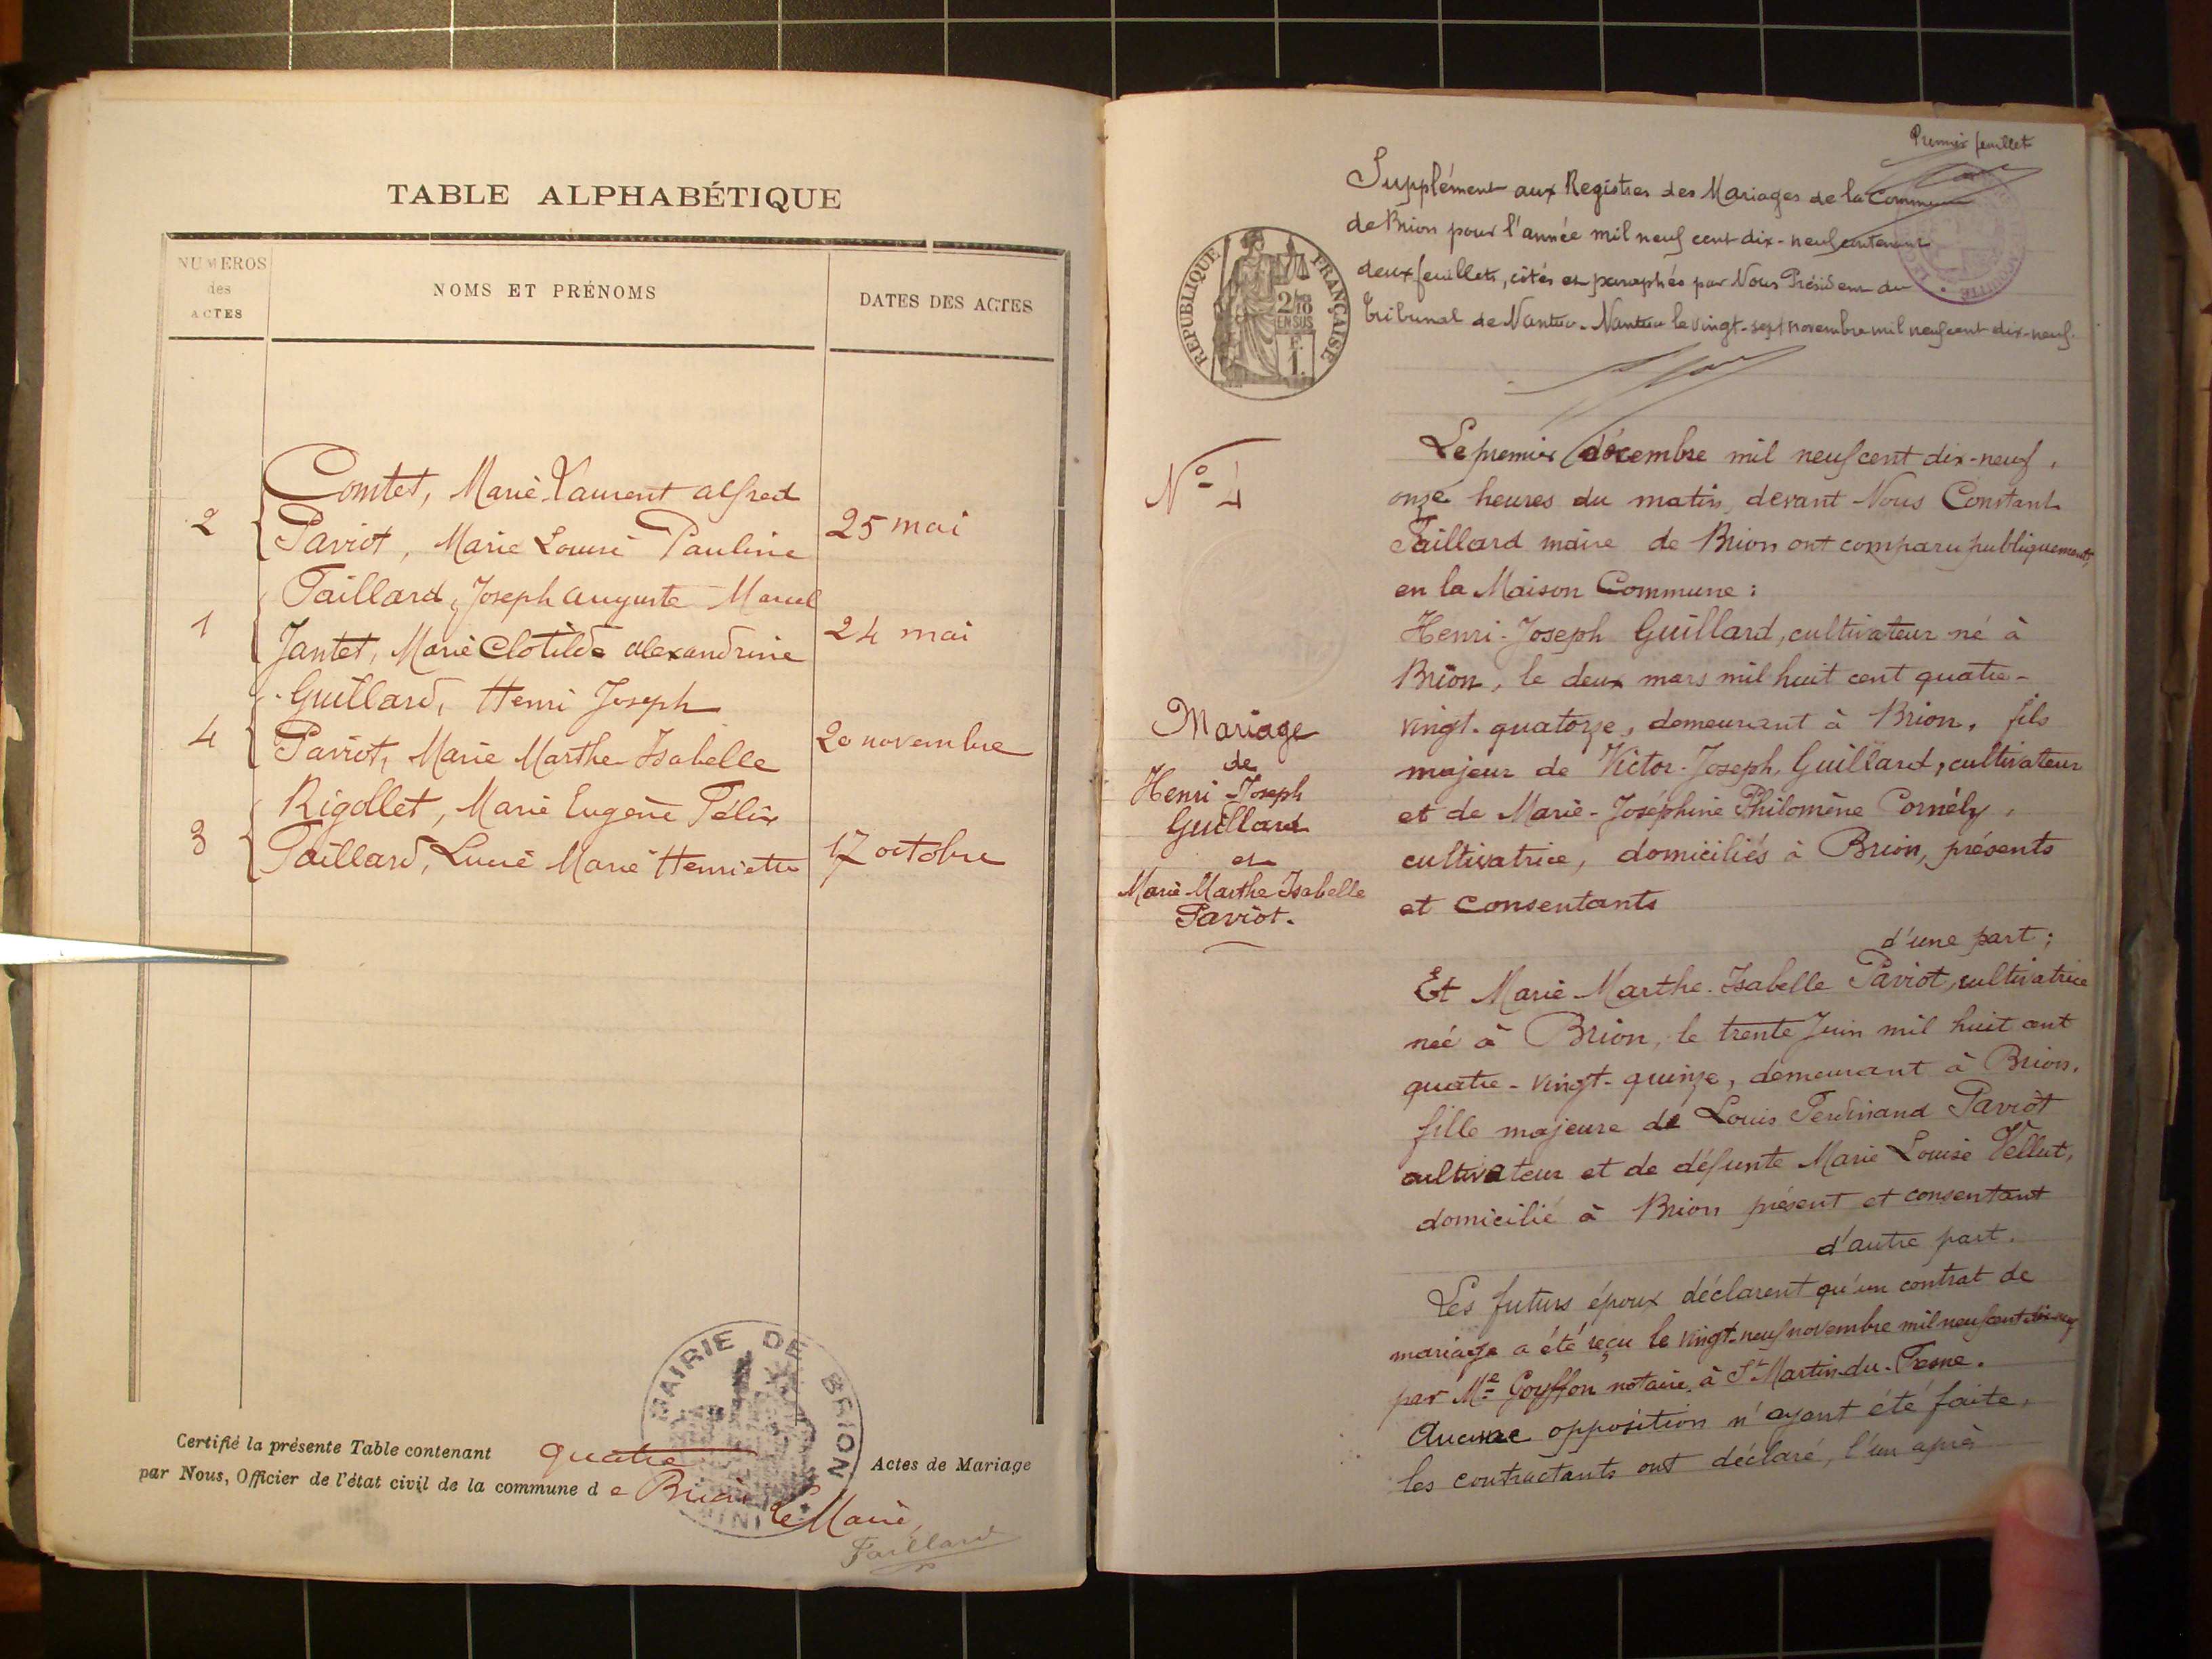 TABLE ALPHABÉTIQUE
NUMEROS
des
ACTES
NOMS ET PRÉNOMS
DATES DES ACTES
Comtet, Marie Laurent Alfred
2 Paviot, Marie Louise Pauline 25 mai
Taillard, Joseph Auguste Marcel
1 Jantet, Marie Clotilde Alexandrine 24 mai
Guillard, Henri Joseph
4 Paviot, Marie Marthe Isabelle 20 novembre
Rigollet, Marie Eugène Félix
3 Taillard, Lucie Marie Henriette 17 octobre
Certifié la présente Table contenant quatre Actes de Mariage
par Nous, Officier de l'état civil de la commune de Brion
Le Maire,
Taillard
MAIRIE DE BRION
Premier feuillet
Supplément aux Registres des Mariages de la Commune
de Brion pour l'année mil neuf cent dix-neuf contenant
deux feuillets, cotés et paraphés par Nous Président du
Tribunal de Nantua. Nantua le vingt-sept novembre mil neuf cent dix-neuf.
RÉPUBLIQUE FRANÇAISE
2/10
EN SUS
F.
1.
No 4
Le premier décembre mil neuf cent dix-neuf,
onze heures du matin, devant Nous Constant
Taillard maire de Brion ont comparu publiquement,
en la Maison Commune :
Henri-Joseph Guillard, cultivateur né à
Brion, le deux mars mil huit cent quatre-
vingt-quatorze, demeurant à Brion, fils
majeur de Victor-Joseph Guillard, cultivateur
et de Marie-Joséphine Philomène Cornély,
cultivatrice, domiciliés à Brion, présents
et consentants
d'une part ;
Mariage
de
Henri-Joseph
Guillard
et
Marie Marthe Isabelle
Paviot.
Et Marie Marthe Isabelle Paviot, cultivatrice
née à Brion, le trente Juin mil huit cent
quatre-vingt-quinze, demeurant à Brion,
fille majeure de Louis Ferdinand Paviot
cultivateur et de défunte Marie Louise Vellut,
domicilié à Brion présent et consentant
d'autre part.
Les futurs époux déclarent qu'un contrat de
mariage a été reçu le vingt-neuf novembre mil neuf cent dix-neuf
par Me Goyffon notaire à St Martin-du-Fresne.
Aucune opposition n'ayant été faite,
les contractants ont déclaré, l'un après